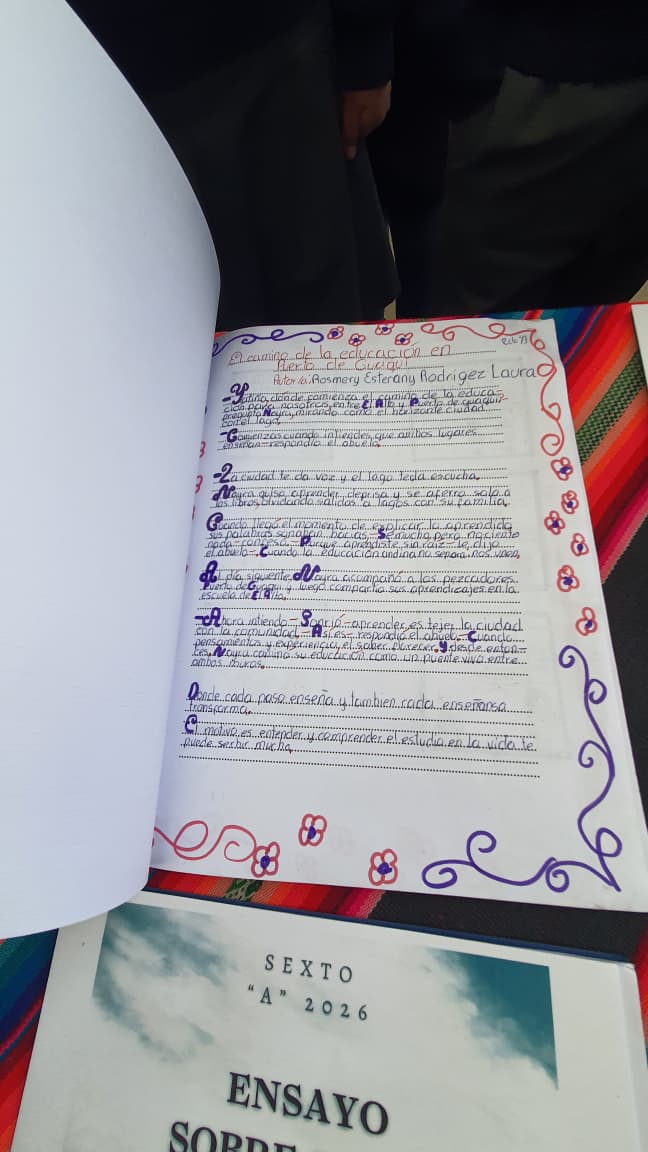 El camino de la educación en
Puerto de Guaqui
Autoria: Rosmery Esterany Rodrigez Laura
-Y Tatino, dónde comienza el camino de la educa-
ción para nosotros, entre El Alto y Puerto de Guaqui?-
pregunto Nayra, mirando como el horizonte ciudad
con el lago.
-Comienzas cuando intiendes que ambos lugares
enseñan- respondio el abuelo.
-La ciudad te da voz y el lago te da escucha.
Nayra quiso aprender deprisa y se aferro solo a
los libros, olvidando salidos a lagos con su familia.
Cuando llegó el momento de explicar lo aprendido
sus palabras sonaban bacias,-Se mucho pero no ciento
nada- confesó.-Porque aprendiste sin raíz- le dijo
el abuelo-Cuando la educación andina no separa, nos unen.
Al día siguiente, Nayra acompañó a los pezcadores
Puerto de Guaqui y luego compartio sus aprendizajes en la
escuela de El Alto.
-Ahora intiendo- Sonrió-aprender es tejer la ciudad
con la comunidad.-Asíes- respondio el abuelo-Cuando
pensamientos y experiencia, el saber florecer. Y desde enton-
ces, Nayra camino su eductación como un puente vivo entre
ambos muros.
Donde cada paso enseña y tambien cada enseñansa
transforma.
El motivo es entender y comprender el estudio en la vida te
puede serbir mucho.
SEXTO
"A" 2026
ENSAYO
SOBRE